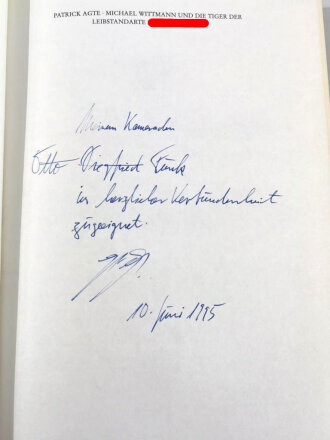 PATRICK AGTE · MICHAEL WITTMANN UND DIE TIGER DER
LEIBSTANDARTE
Meinem Kameraden
Otto Siegfried
in herzlicher Verbundenheit
zugeeignet.
10. Juni 1995